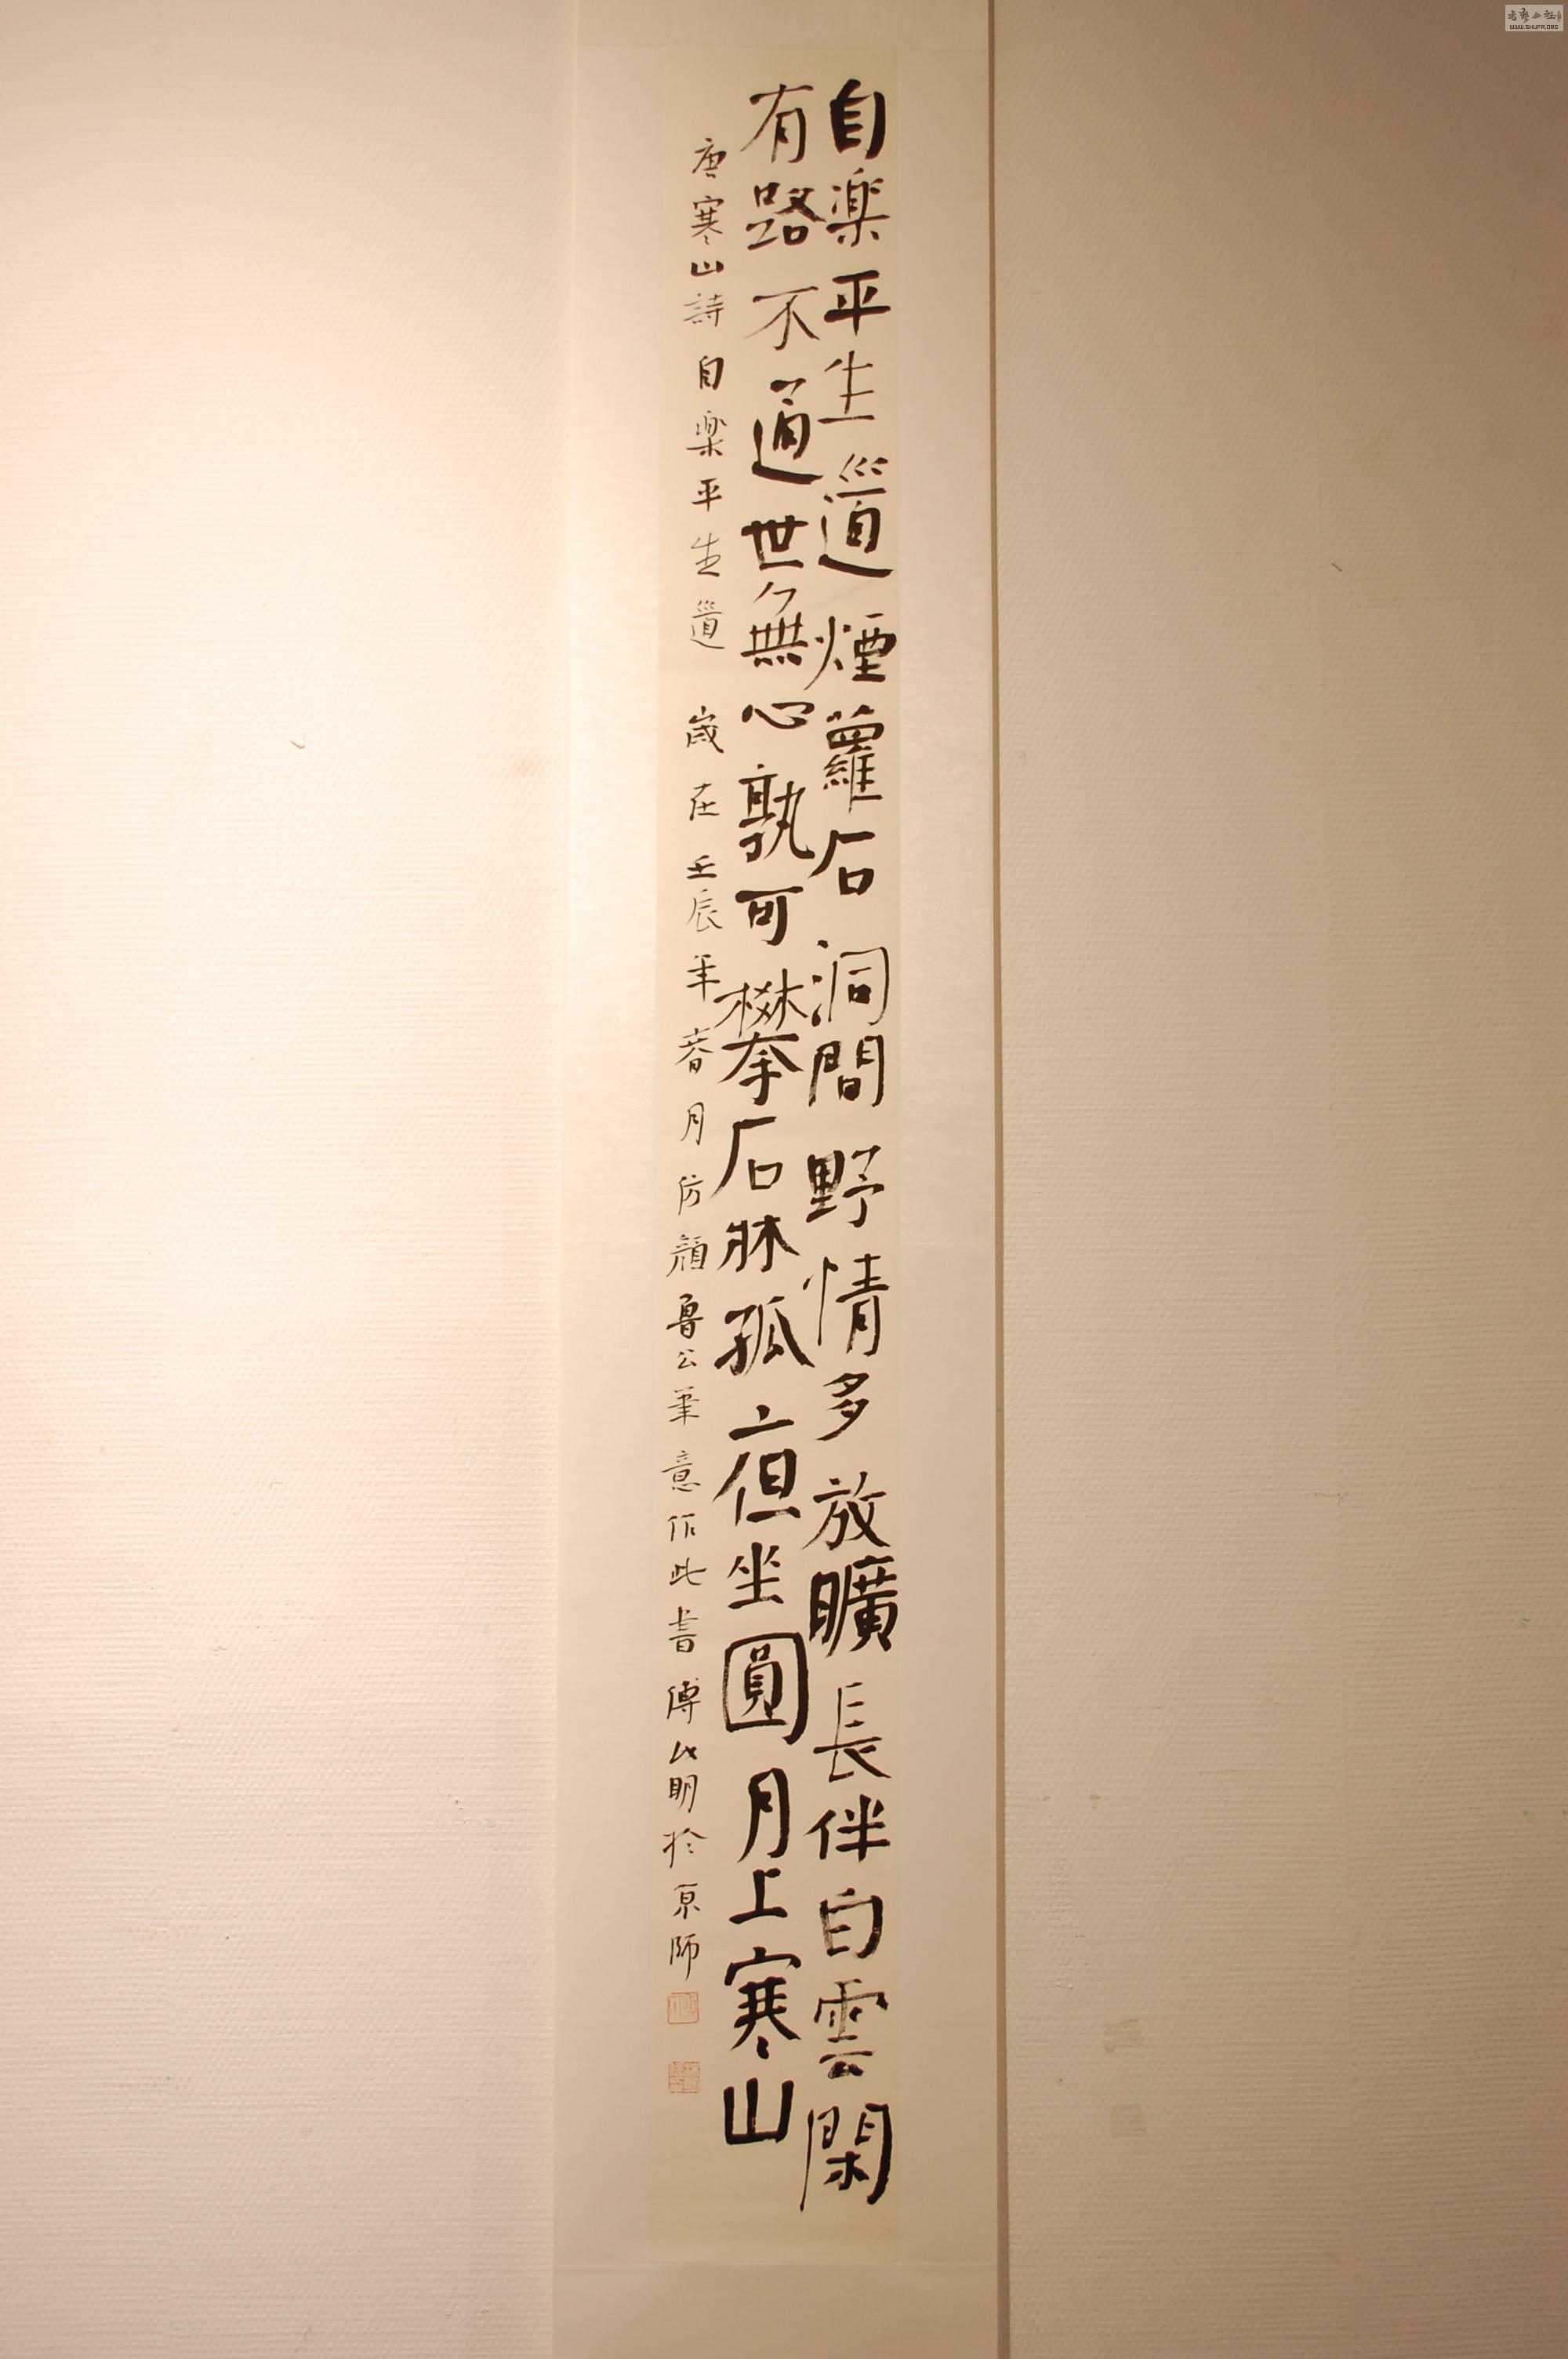 自楽平生道煙蘿石洞間野情多放曠長伴白雲閑
有路不通世無心孰可攀石牀孤夜坐圓月上寒山
唐寒山詩自楽平生道 歲在壬辰年春月仿顏魯公筆意作此書傅明於京師
WWW.SHUFA.ORG